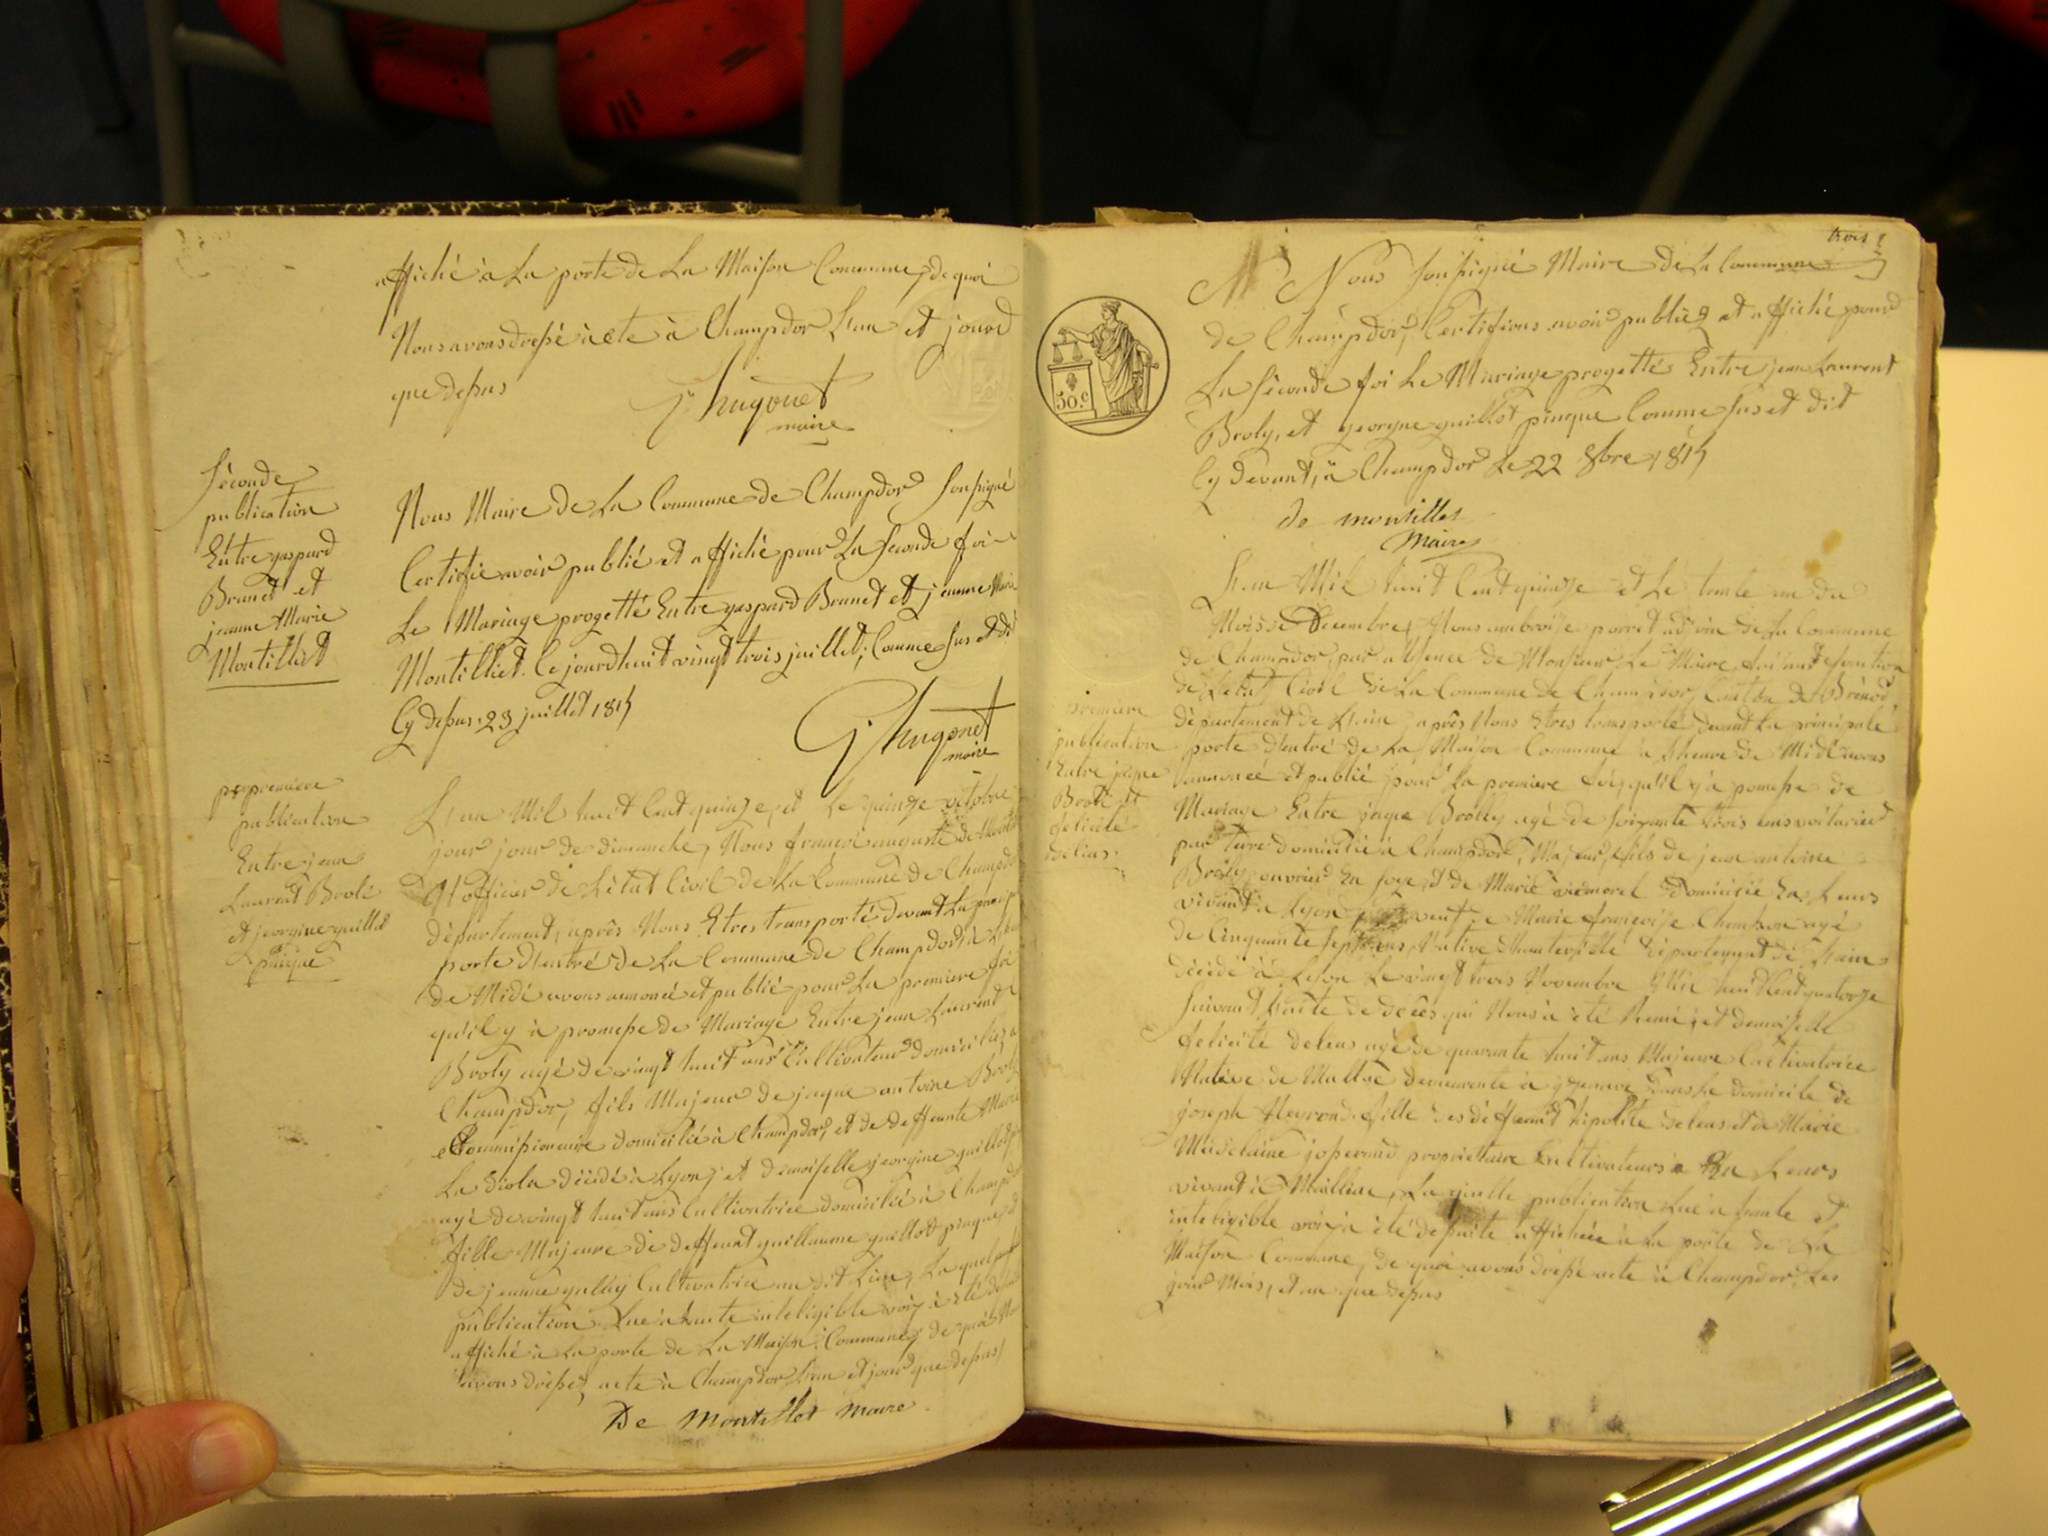 affiché à La porte de La Maison Commune, de quoi
Nous avons dressé acte à Champdor L'an et jour d
que dessus
J. hugonet
maire
Séconde
publication
Entre gaspard
Brunet et
jeanne Marie
Montilliet
Nous Maire de La Commune de Champdor Soussigné
Certifie avoir publié et affiché pour La Seconde foi
Le Mariage progetté Entre gaspard Brunet et jeanne Marie
Montilliet. Ce jourdhuit vingt trois juillet, Comme Sus et dit
Cy dessus 23 juillet 1815
J. hugonet
maire
premiere
publication
Entre jean
Laurent Broli
et jeorgine guillot
pinque
L'an Mil huit Cent quinze, et Le quinze octobre
jour de dimanche, Nous françois auguste de
officier de L'état Civil de La Commune de Champdor
département, après Nous Etres transporté devant La
porte d'entré de La Commune de Champdor, à
de Midi avons anoncé et publié pour La premiere foi
qu'il y à promesse de Mariage Entre jean Laurent
Broly agé de vingt huit ans Cultivateur domicilié à
Champdor, fils Majeur de jaque antoine Broly
Commissionaire domicilié à Champdor, et de deffeunte Marie
La diola décidé à Lyon, et demoiselle jeorgine guillot
agé de vingt huit ans Cultivatrice domicilié à Champdor
fille Majeure de deffeunt guillaume guillot pinque, et
de jeanne Cultivatrice au dit Lieu, La quel
publication Lue à haute inteligible voix à été de
affiché à La porte de La Maison Commune, de quoi
avons dressé, acte à Champdor L'an et jour que dessus
De Montillet Maire
trois
Nous Soussigné Maire de La Commune
de Champdor, Certifions avoir publiez et affiché pour
La Séconde foi Le Mariage progetté Entre jean Laurent
Broly, et georgine guillot pinque Comme Sus et dit
Cy devant, à Champdor Le 22 8bre 1815
de montillet
Maire
50.c
premiere
publication
Entre jaque
Broli et
felicité
deleas
L'an Mil huit Cent quinze et Le trente un du
Mois de Décembre, Nous ambroise porret adjoin de La Commune
de Champdor, par absence de Monsieur Le Maire, faisant fonction
de L'état Civil de La Commune de Champdor, Canton de Brénod
département de L'ain, après Nous Etres transporté devant La principale
porte d'entré de La Maison Commune à L'heure de Midi avons
annoncé et publié pour La premiere fois, qu'il y à promesse de
Mariage Entre jaque Brolly agé de soixante trois ans voiturier
par terre domicilié à Champdor, Majeur, fils de jean antoine
Broly, ouvrier En soye, et de Marie domicilié En Leurs
vivant à Lyon veuf de Marie françoise Chambon agé
de Cinquante Sept ans, Native département de L'ain
décédé à Le vingt trois Novembre Mil huit Cent quatorze
Suivant L'acte de décès qui Nous à été Remi, et demoiselle
felicité deleas agé de quarante huit ans Majeure Cultivatrice
Native de demeurante à dans Le domicile de
joseph fille des deffeunt hipolite deleas et de Marie
Madelaine josserand propriétaire Cultivateurs En Leurs
vivant à La quelle publication Lue à haute et
inteligible voix à été de suite affichée à La porte de La
Maison Commune, de quoi avons dressé acte à Champdor Les
jour Mois, et an que dessus